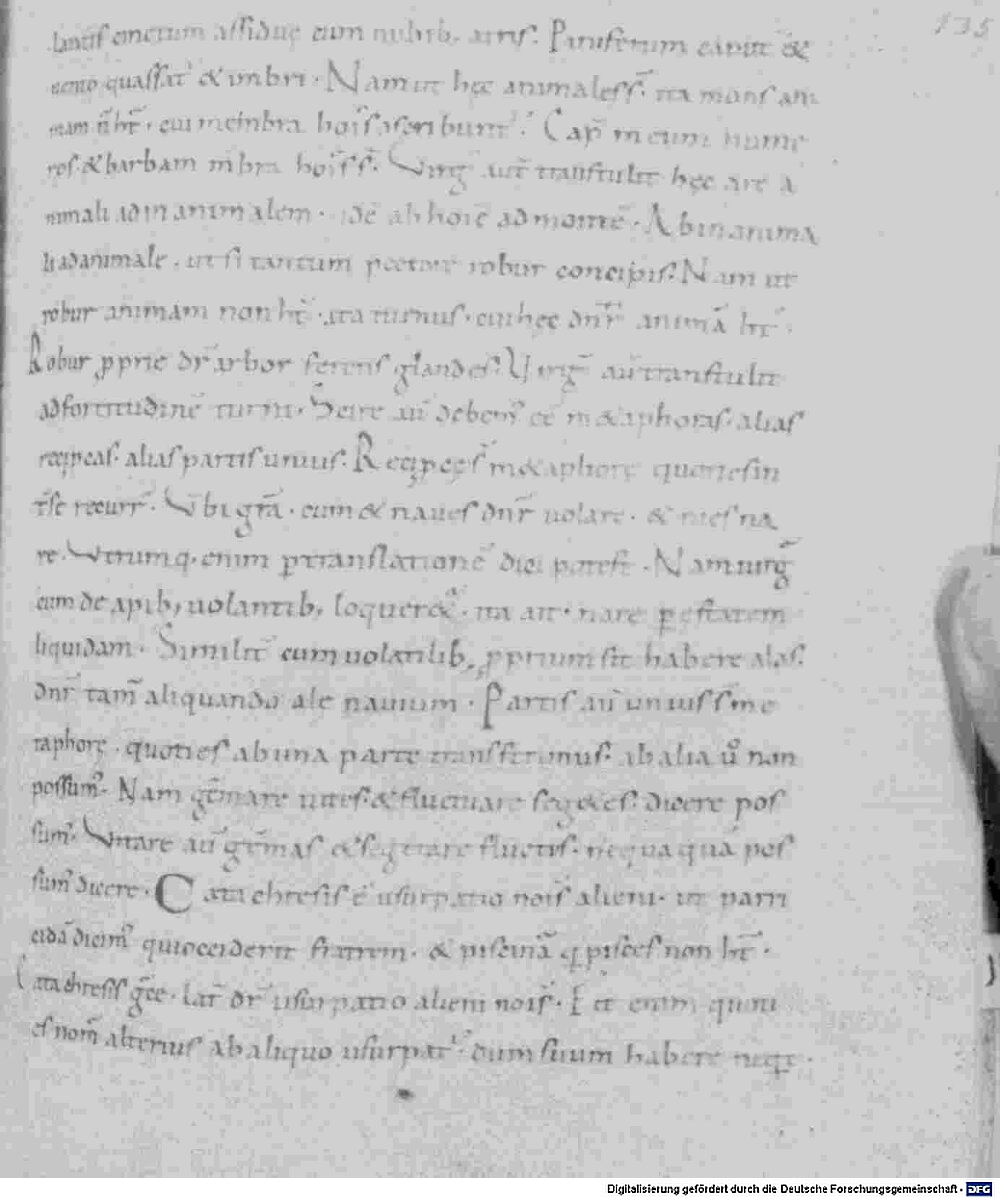 135
lantis cinctum assidue cum nubib; atris. Piniferum caput &
uento quassat᷑ & imbri. Nam ut hęc animales s̄t. ita mons ani
mam ñ ht̄. cui membra hois̄ ascribunt᷑. Cap̄ ñ cum hume
ros. & barbam m̄bra hois̄ s̄t. Virḡ aut̄ transtulit hęc are a
nimali ad inanimalem. idē ab hoīe ad montē. Ab inanima
li ad animale. ut si tantum pectore robur concipis. Nam ut
robur animam non ht̄. ita turnus. cui hęc dn̄r animā ht̄.
Robur ꝓprie dr̄ arbor ferens glandes. Virḡ au̅ transtulit
ad fortitudinē turni. Scire au̅ debem᷒ eē m&aphoras. alias
recipcas. alias partis unius. Recipcęs m&aphorę quotiesin
t̄ se recurr̄. Vbi gr̄a. cum & naues dn̄r uolare. & aues na
re. Vtrumq; enim ꝑ translationē dici potest. Nam uirg̅
cum de apib; uolantib; loquer&᷑. ita ait. nare ꝑ estatem
liquidam. Similit̄ cum uolatilib; ꝓprium sit habere alas.
dn̄r tam̄ aliquando alę nauium. Partis au̅ unius s̄ me
taphorę. quoties ab una parte transferimus. ab alia ů non
possum᷒. Nam gem̄are uites. & fluctuare seg&es. dicere pos
sum᷒. Vitare au̅ gem̄as & segetare fluctus. nequaquā pos
sum᷒ dicere. Catachresis ē usurpatio nois̄ alieni. ut parri
cidā dicim᷒ qui occiderit fratrem. & piscinā q̨ pisces non ht̄.
Catachresis gr̄ce. lat̄ dr̄ usurpatio alieni nois̄. Fit enim quoti
es nom̄ alterius ab aliquo usurpat᷑. dum suum habere neq̨t.
Digitalisierung gefördert durch die Deutsche Forschungsgemeinschaft - DFG